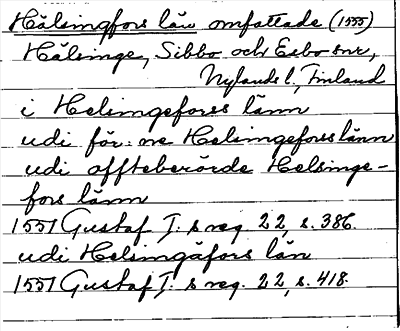 Hälsingfors län omfattade (1555)
Hälsinge, Sibbo och Esbo snr,
Nylands l., Finland
i Helsingeforss länn
udi för: ne Helsingeforss länn
udi offteberörde Helsinge-
fors länn
1551 Gustaf I: s reg. 22, s. 386.
udi Helsingåfors län
1551 Gustaf I: s reg. 22, s. 418.